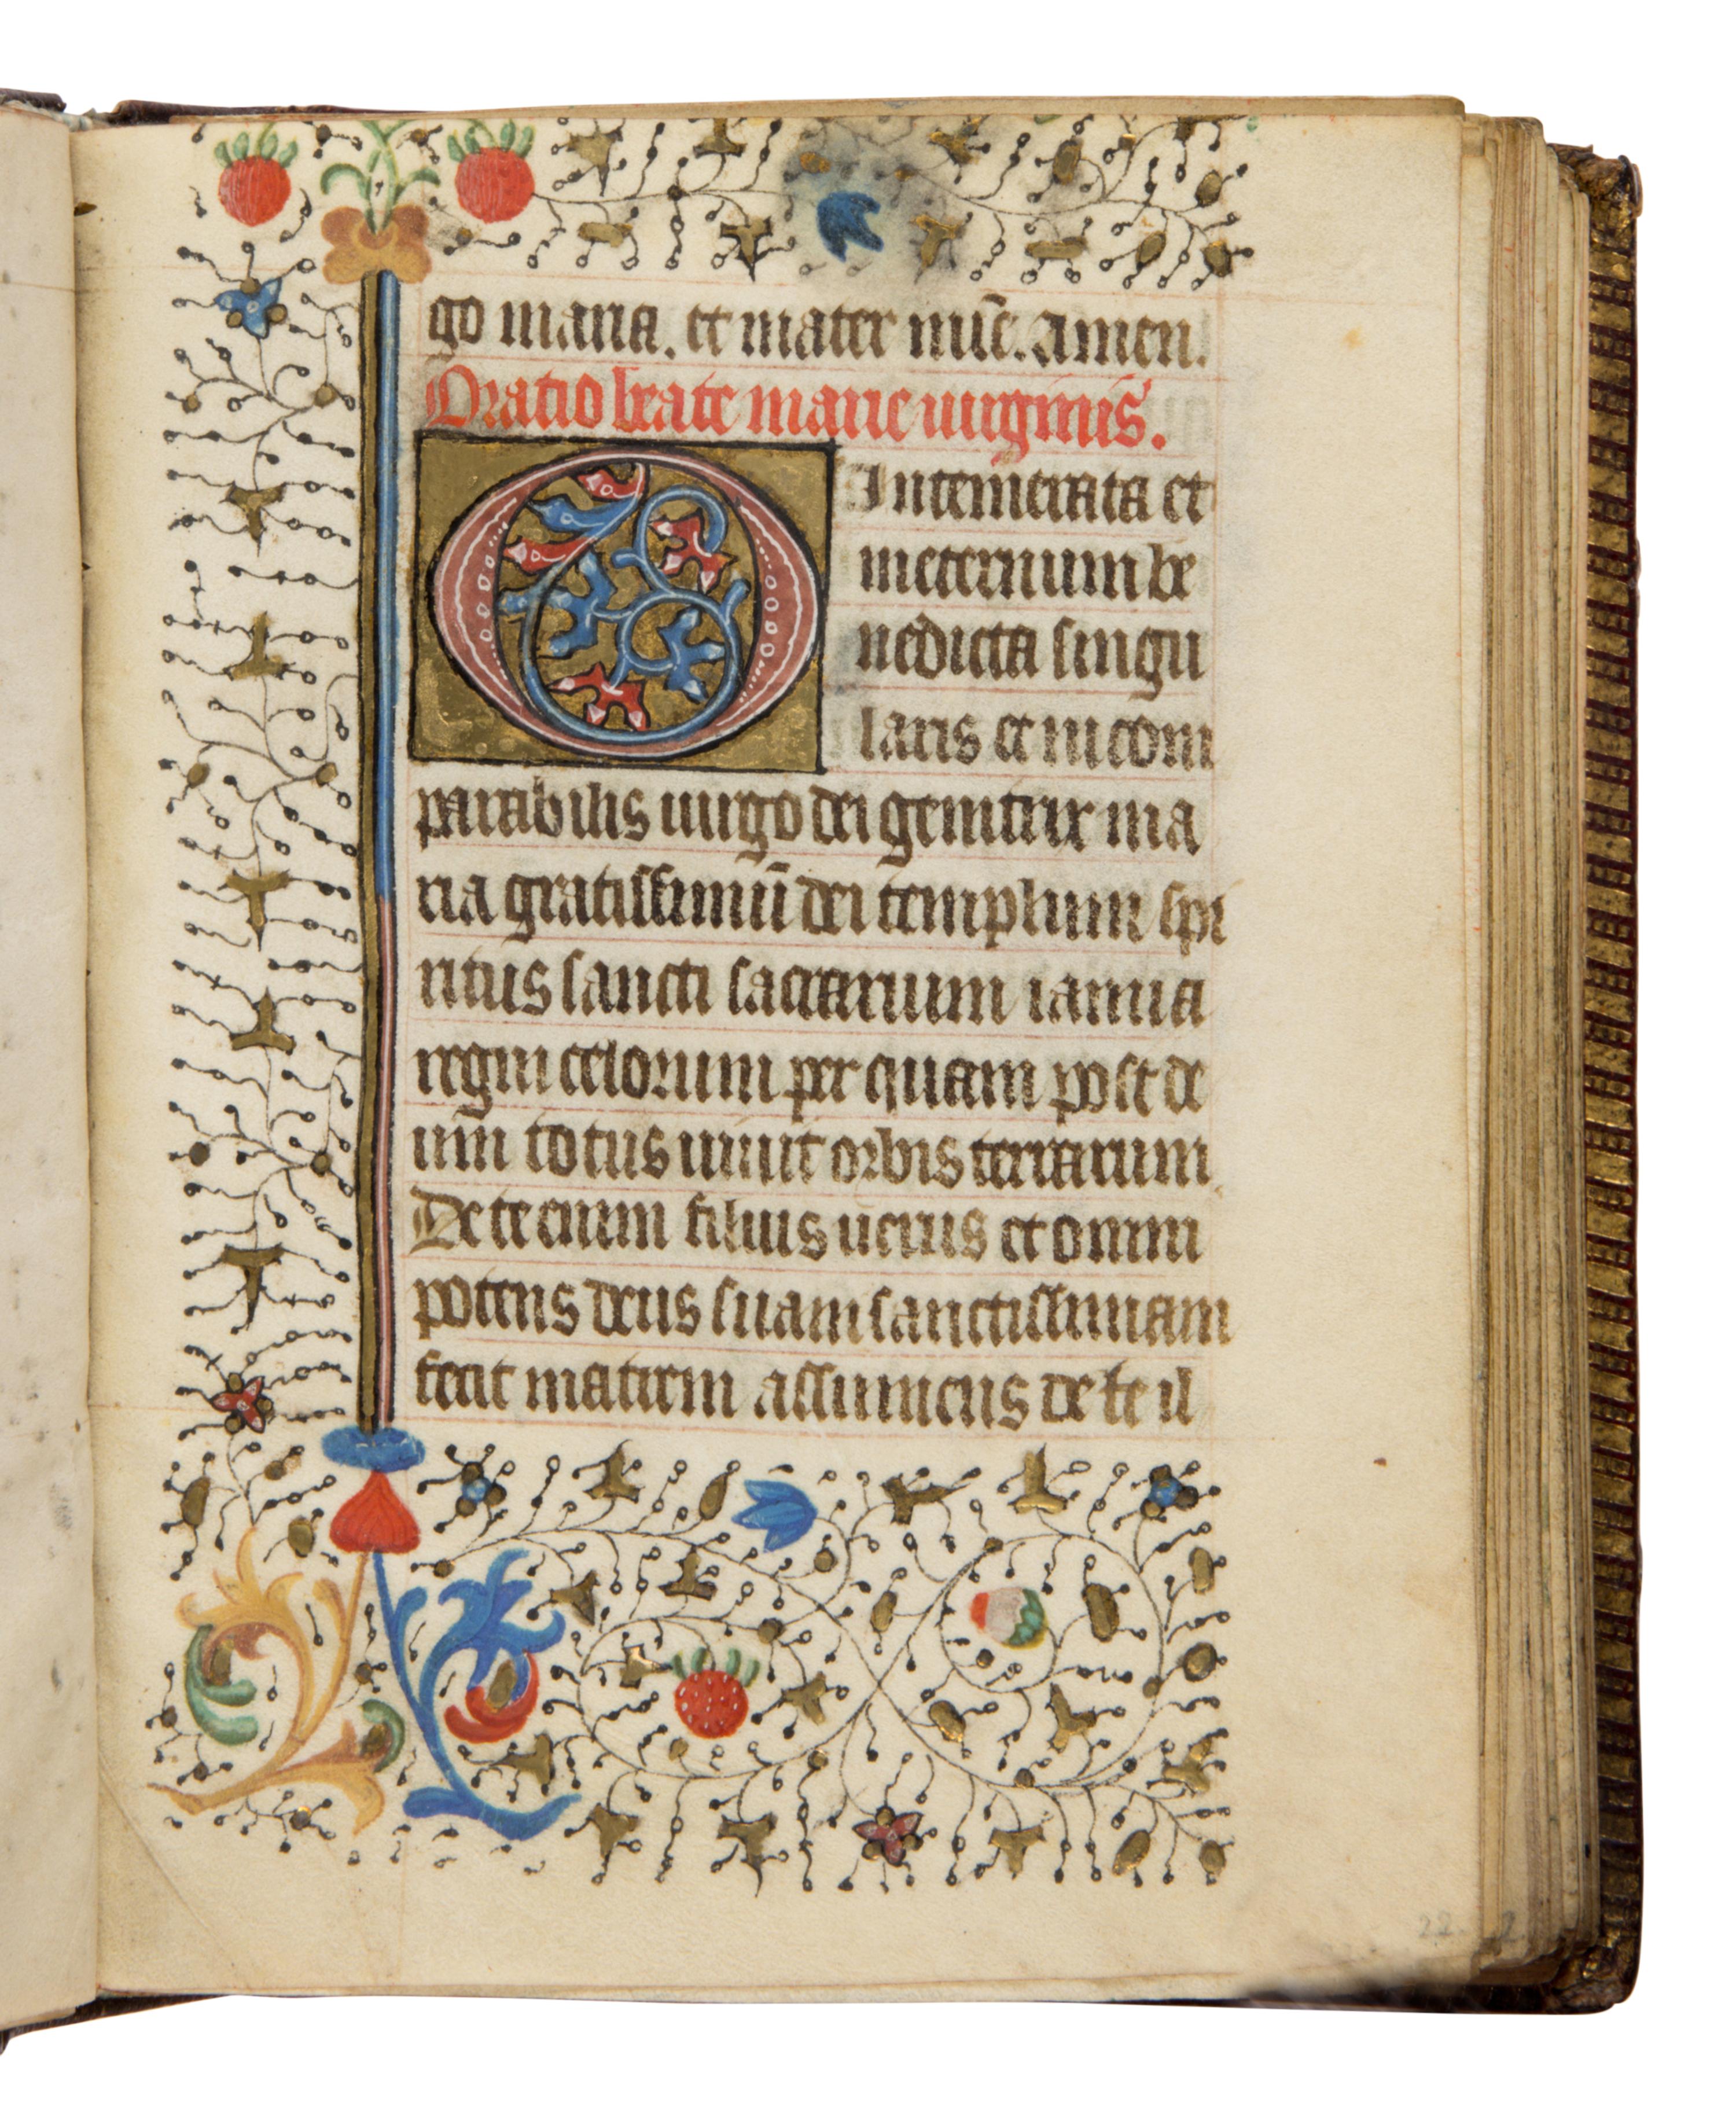 go maria. et mater mīe. Amen.
Oratio beate marie uirginis.
O Intemerata et
in eternum be
nedicta singu
laris et incom
parabilis uirgo dei genitrix ma
ria gratissimū dei templum spi
ritus sancti sacrarium ianua
regni celorum per quam post de
um totus uiuit orbis terrarum
De te enim filius uerus et omni
potens deus suam sanctissimam
fecit matrem assumens de te il
22